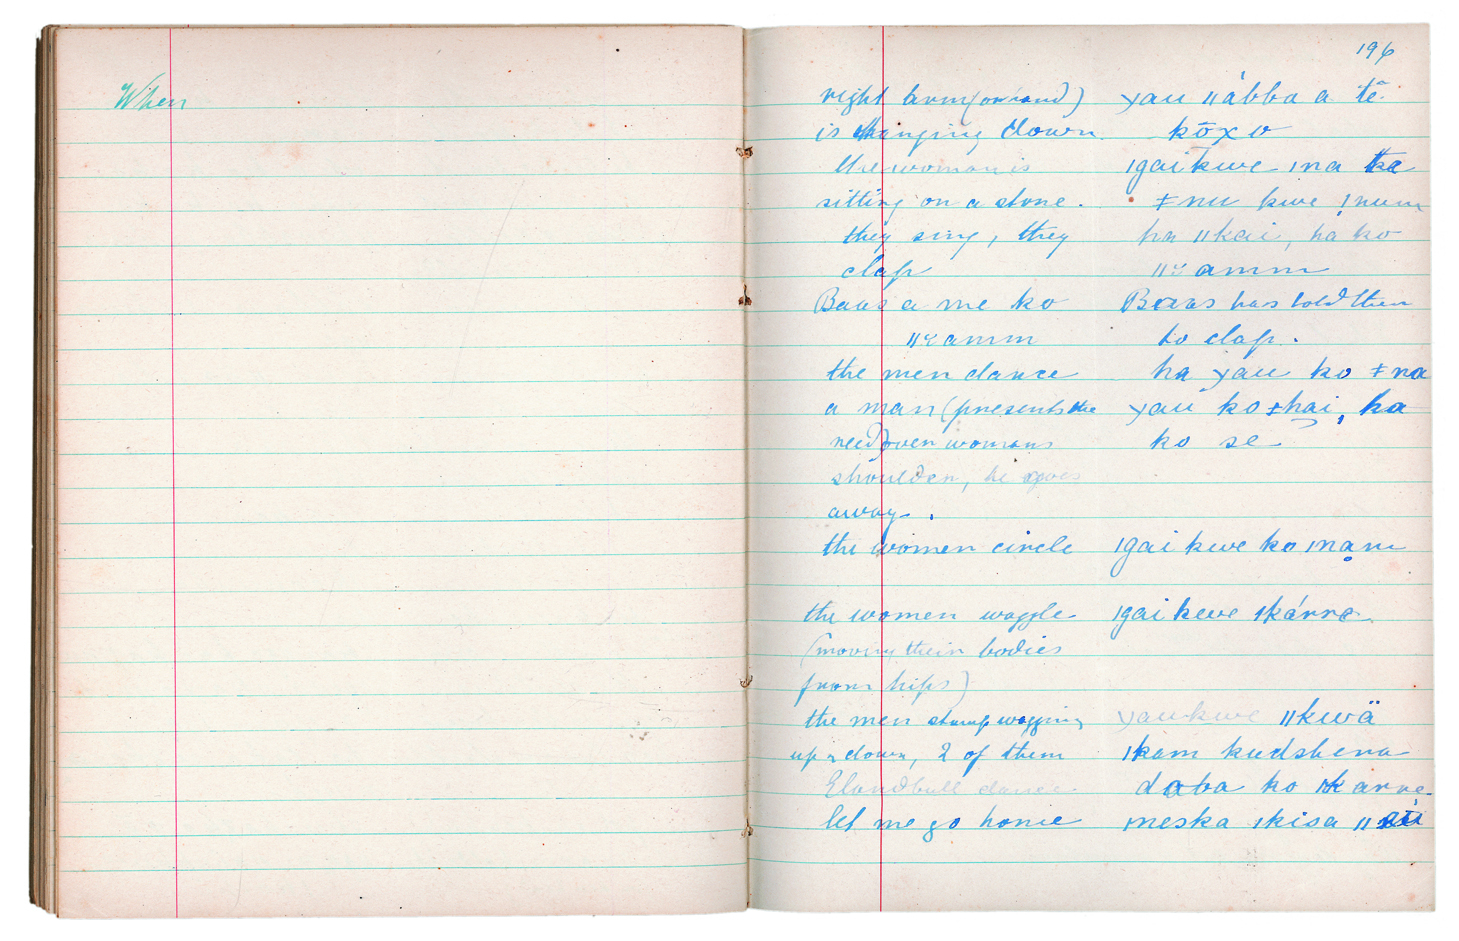 When
196
right arm (or hand) yau ǁábba a tē
is hanging down kōxo
the woman is ǀgaikwe ǀna ka
sitting on a stone. ǂnu kwe ǀnum
they sing, they ha ǁkai, ha ko
clap ǁamm
Baas a me ko Baas has told them
ǁamm to clap.
the men dance ha yau ko ǂna
a man (presents the yau ko ǂhai, ha
reed) over womans ko se
shoulder, he goes
away.
the women circle ǀgai kwe ko ǀnam
the women waggle ǀgai kwe ǀkárre
(moving their bodies
from hips)
the men stamp wagging yaukwe ǁkwä
up & down, 2 of them ǀkam kudshena
Elandbull dance daba ko ǀkarre
let me go home meska ǀkisa ǁ